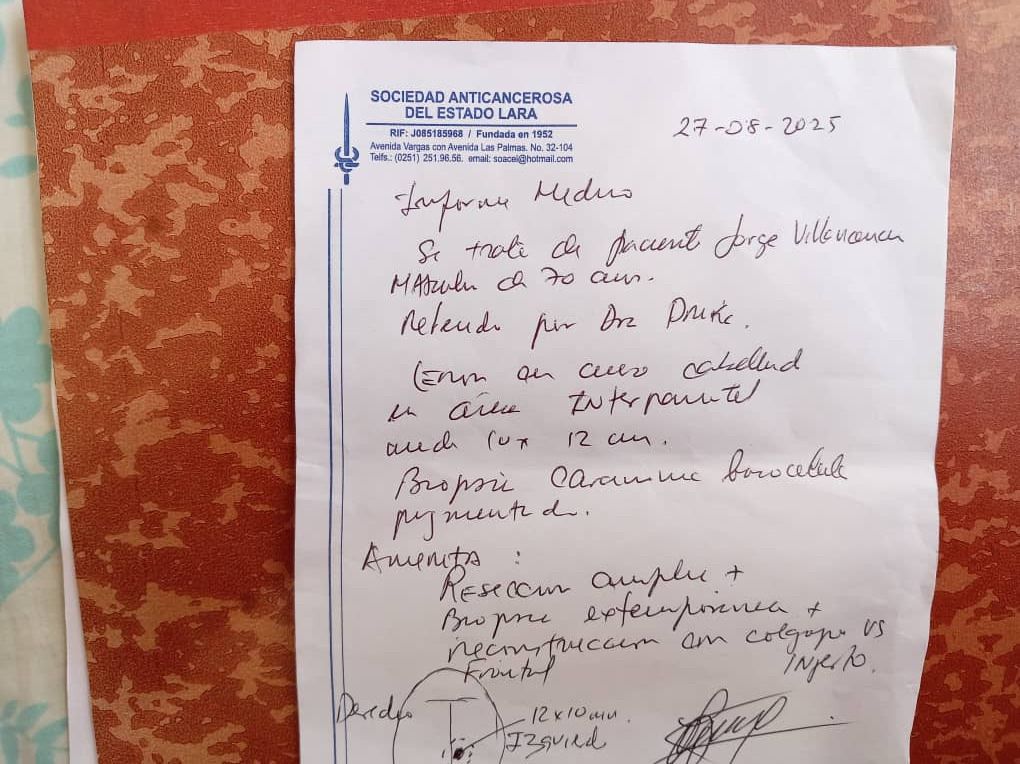 SOCIEDAD ANTICANCEROSA
DEL ESTADO LARA
RIF: J085185968 / Fundada en 1952
Avenida Vargas con Avenida Las Palmas. No. 32-104
Telfs.: (0251) 251.96.56. email: soacel@hotmail.com
27-08-2025
Informe Medico
Se trata de paciente Jorge
Masculino de 70 años.
Referido por Dra
Lesion en cuero cabelludo
en área Interparietal
mide 10 x 12 cm.
Biopsia Carcinoma basocelular
pigmentado.
Amerita :
Reseccion amplia +
Biopsia extemporanea +
reconstruccion con colgajo vs
Injerto.
Frontal
Derecho
12x10 mm.
Izquierdo